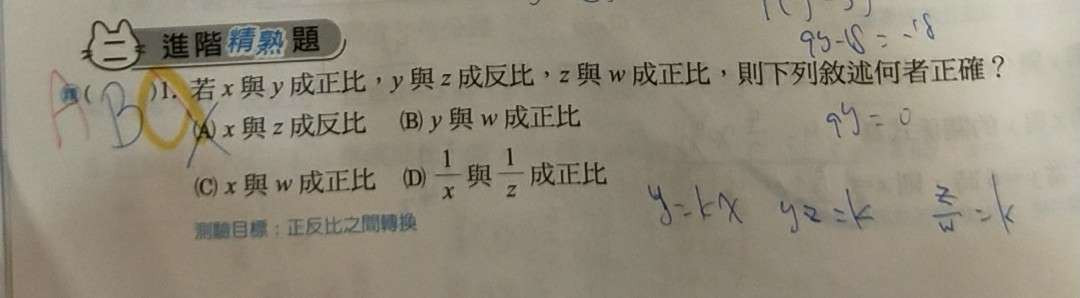 9y-18 = -18
二 進階精熟題
A B )1. 若 x 與 y 成正比，y 與 z 成反比，z 與 w 成正比，則下列敘述何者正確？
(A) x 與 z 成反比 (B) y 與 w 成正比
9y = 0
(C) x 與 w 成正比 (D) 1/x 與 1/z 成正比
y=kx yz=k z/w=k
測驗目標：正反比之間轉換